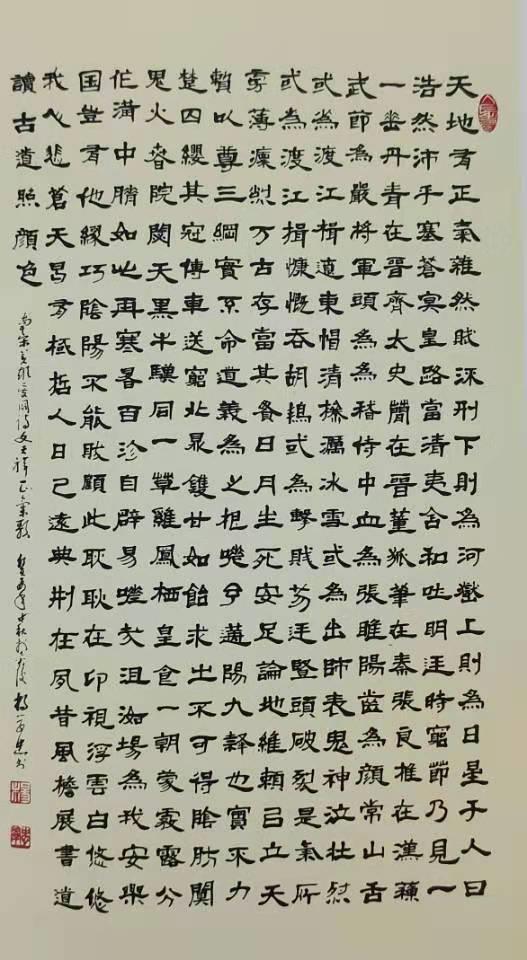 天地有正氣雜然賦流刑下則為河嶽上則為日星于人曰
浩然沛乎塞蒼冥皇路當清夷含和吐明廷時窮節乃見一
一垂丹青在晋齊太史簡在晉董狐筆在秦張良椎在漢蘇
武節為嚴將軍頭為為嵇侍中血為張睢陽齒為顏常山舌
或為渡江楫遼東帽清操厲冰雪或為出師表鬼神泣壯烈
或為渡江楫慷慨吞胡羯或為擊賊笏逆豎頭破裂是氣所
旁薄凜烈万古存當其貫日月生死安足論地維賴吕立天
賴以尊三綱實系命道義為之根嗟兮遘陽九隸也實不力
楚囚纓其冠傳車送窮北鼎鑊甘如飴求之不可得陰房闃
鬼火春院閟天黑牛驥同一草雞鳳栖皇食一朝蒙霧露分
作溝中瘠如此再寒暑百沴自辟易嗟哉沮洳場為我安樂
国豈有他繆巧陰陽不能賊顧此耿耿在卬視浮雲白悠悠
我心悲蒼天曷有極哲人日已遠典刑在夙昔風檐展書道
讀古道照顏色
南宋文天祥正氣歌 中秋 楊 書